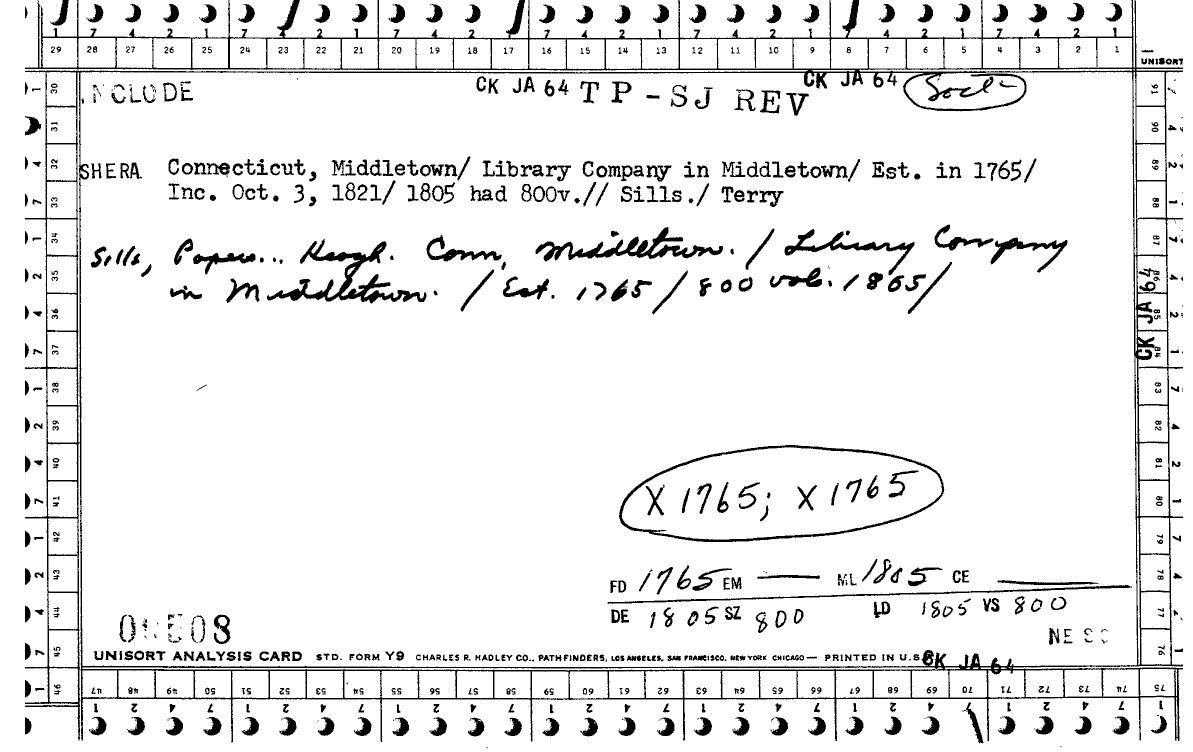 1 7 4 2 1 7 4 2 1 7 4 2 1 7 4 2 1 7 4 2 1 7 4 2 1 7 4 2 1
29 28 27 26 25 24 23 22 21 20 19 18 17 16 15 14 13 12 11 10 9 8 7 6 5 4 3 2 1
UNISORT
CK JA 64 TP-SJ REV CK JA 64
SHERA Connecticut, Middletown/ Library Company in Middletown/ Est. in 1765/
Inc. Oct. 3, 1821/ 1805 had 800v.// Sills./ Terry
Sills, Papers... Keogh. Conn, Middletown. / Library Company
in Middletown. / Est. 1765 / 800 vols. 1865/
X 1765; X 1765
FD 1765 EM — ML 1805 CE
DE 1805 SZ 800 LD 1805 VS 800
UNISORT ANALYSIS CARD STD. FORM Y9 CHARLES R. HADLEY CO., PATHFINDERS, LOS ANGELES, SAN FRANCISCO, NEW YORK CHICAGO — PRINTED IN U.S.
CK JA 64
30 31 32 33 34 35 36 37 38 39 40 41 42 43 44 45 46
91 90 89 88 87 86 85 84 83 82 81 80 79 78 77 76 75
CK JA 64
47 48 49 50 51 52 53 54 55 56 57 58 59 60 61 62 63 64 65 66 67 68 69 70 71 72 73 74